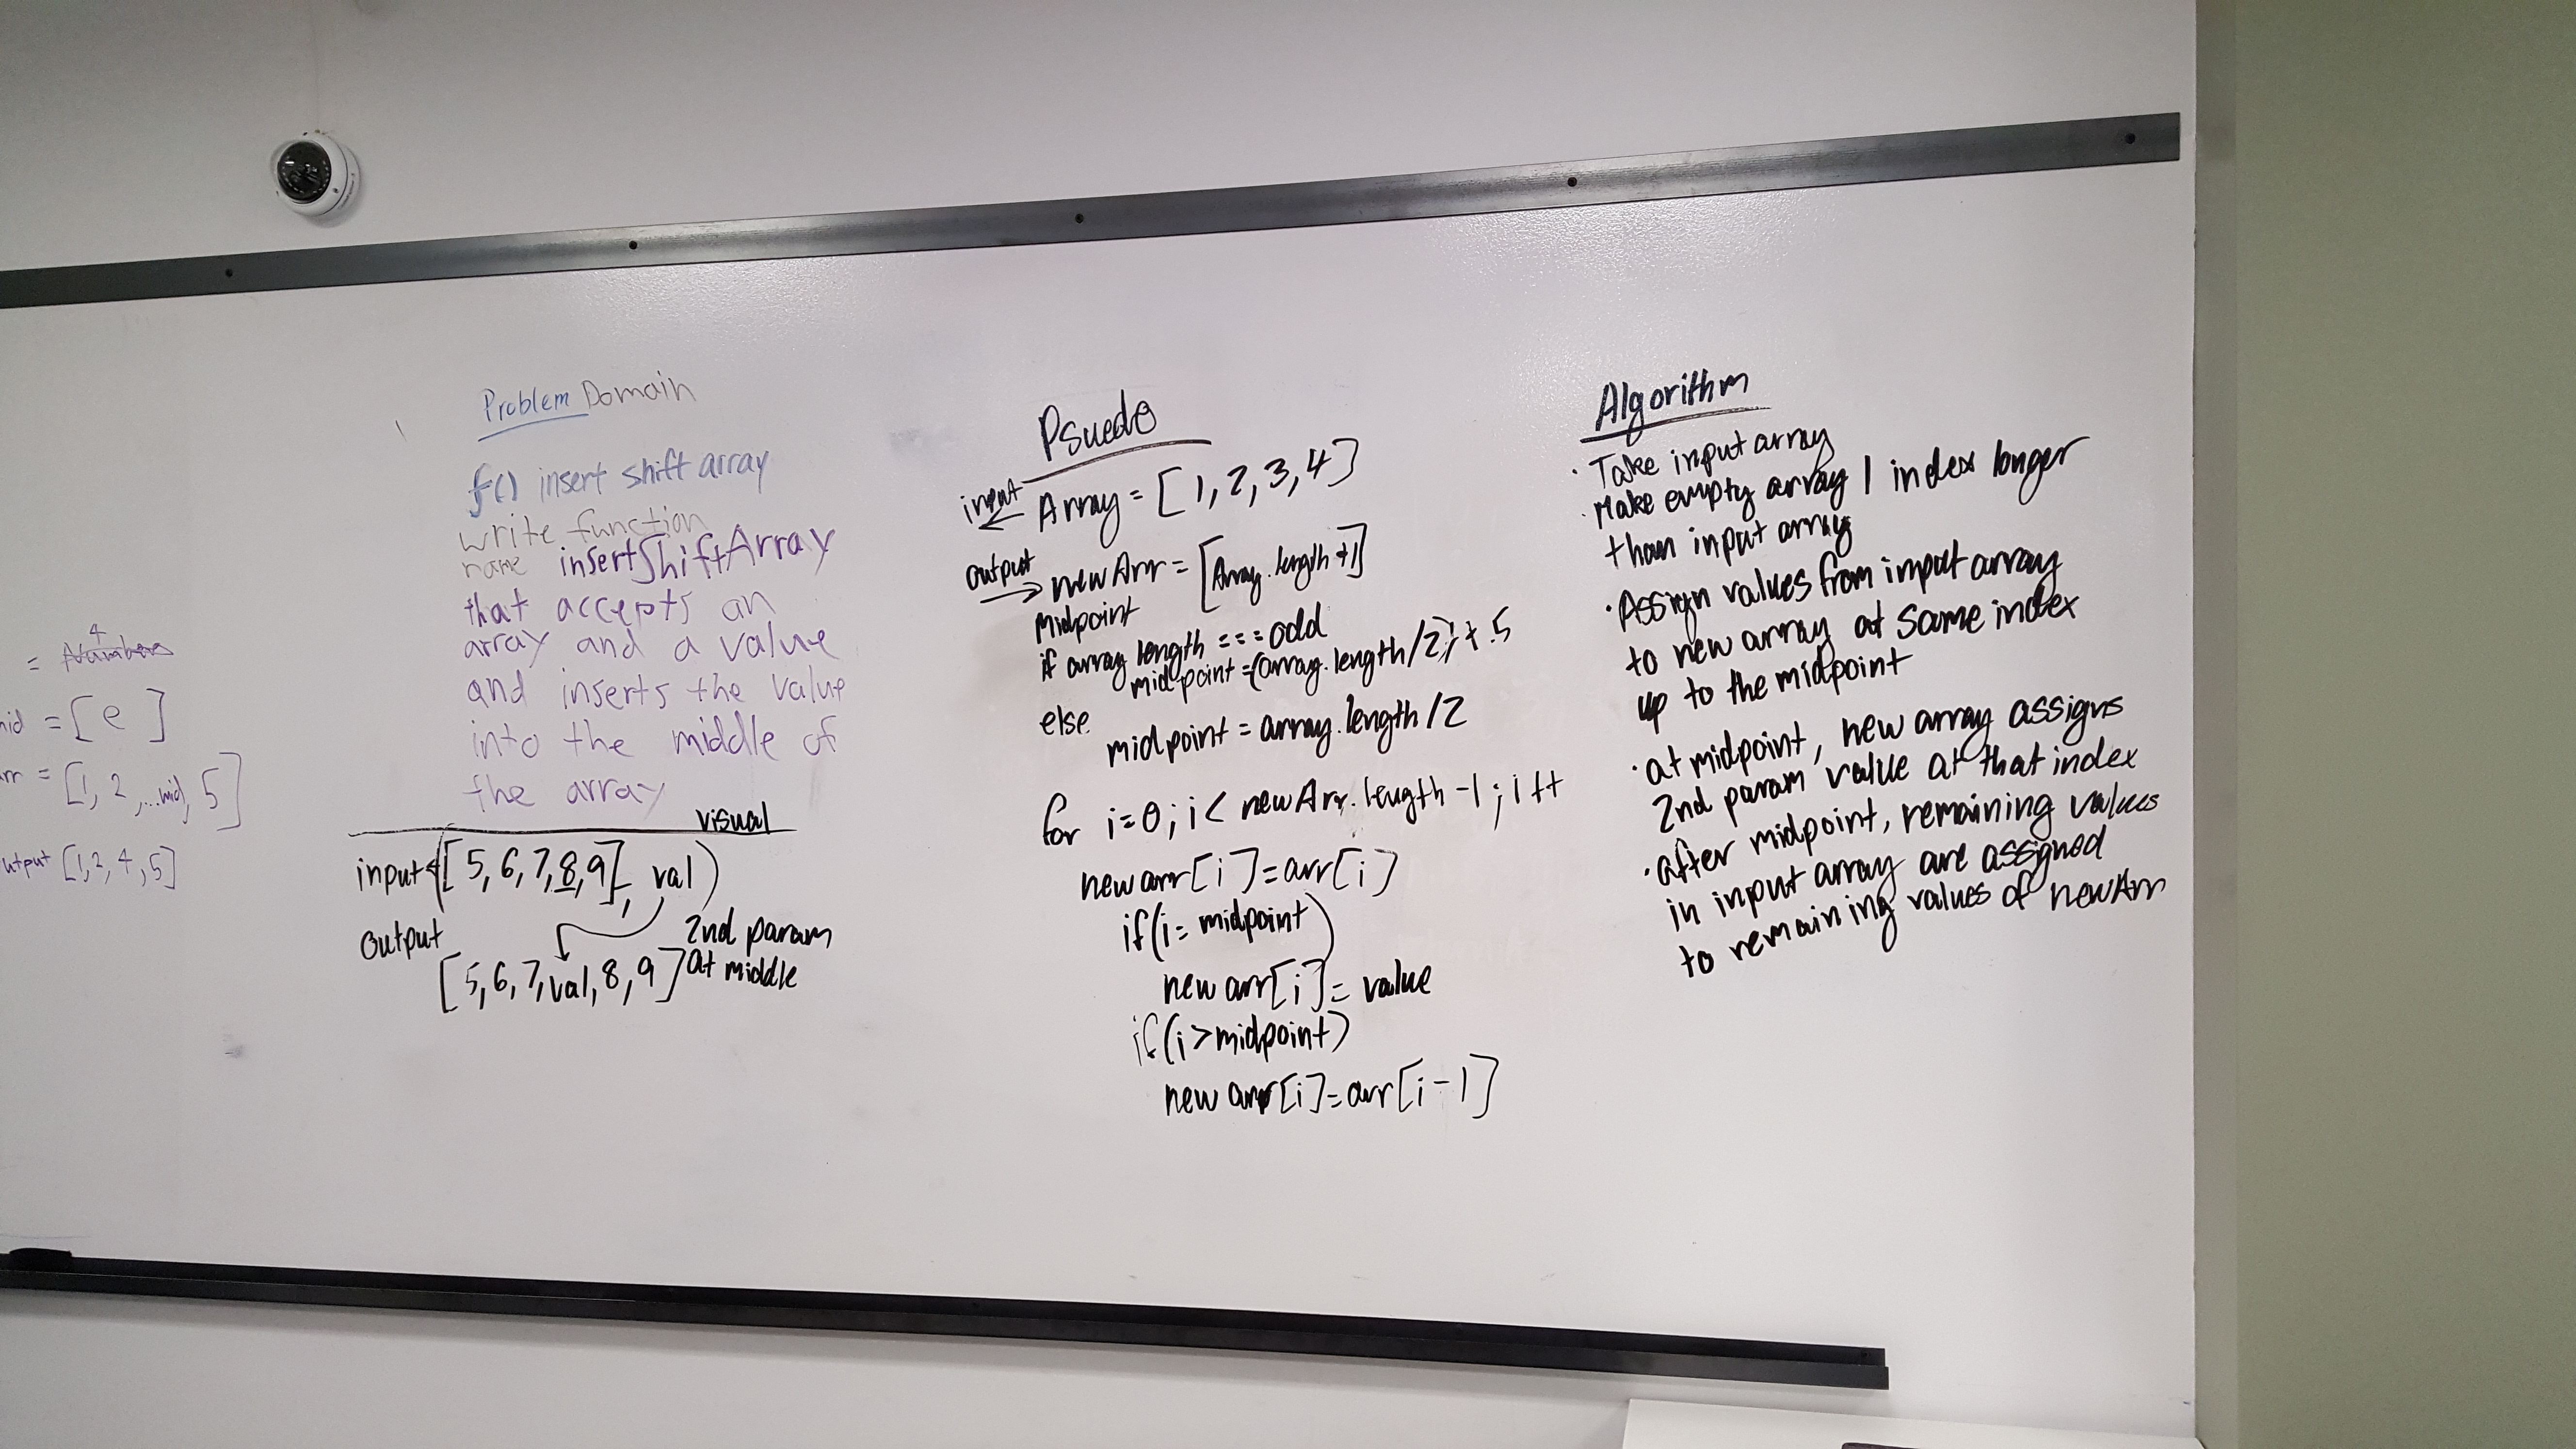 4
= Numbers
mid = [ e ]
arr = [1, 2, ...mid, 5]
output [1,2,4,5]
Problem Domain
f() insert shift array
write function
name insertShiftArray
that accepts an
array and a value
and inserts the value
into the middle of
the array
visual
input ([5,6,7,8,9], val)
output
2nd param
at middle
[5,6,7,val,8,9]
Psuedo
input
Array = [1,2,3,4]
output
newArr = [Array.length +1]
Midpoint
if array length === odd
midpoint = (array.length/2) + .5
else
midpoint = array.length/2
for i=0; i< newArr.length -1; i++
new arr[i]=arr[i]
if(i= midpoint)
new arr[i]= value
if(i>midpoint)
new arr[i]=arr[i-1]
Algorithm
· Take input array
· Make empty array 1 index longer
than input array
· Assign values from input array
to new array at same index
up to the midpoint
· at midpoint, new array assigns
2nd param value at that index
· after midpoint, remaining values
in input array are assigned
to remaining values of newArr